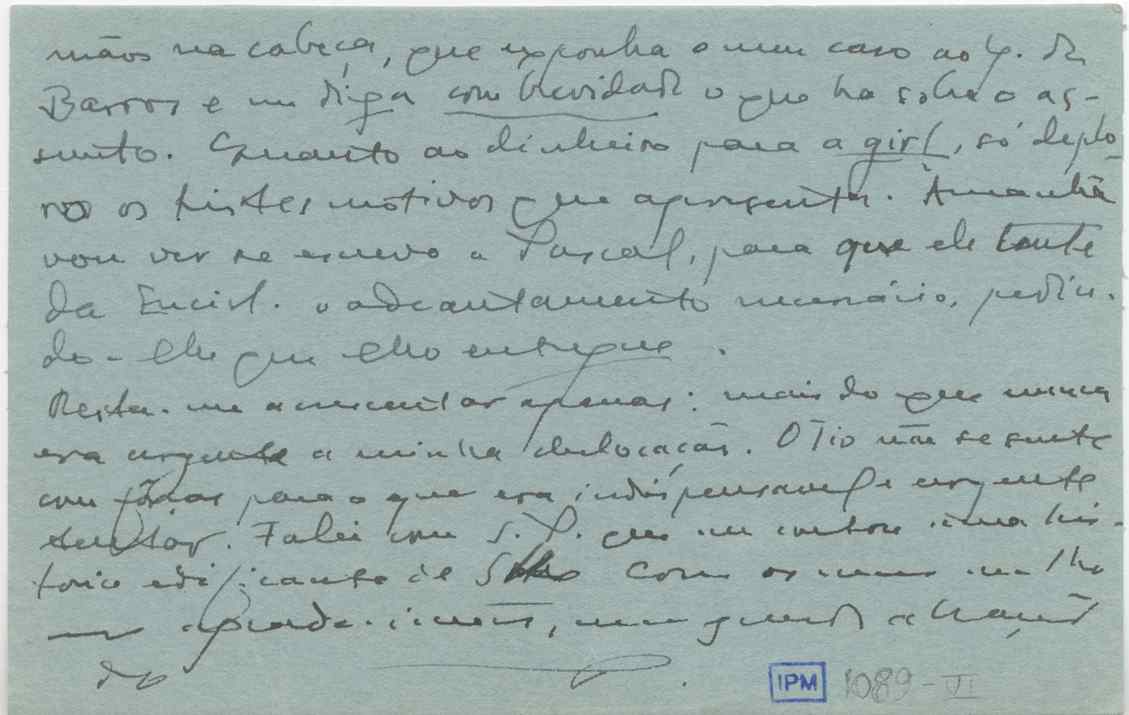 mãos na cabeça, que exponha o meu caso ao Q. de
Barros e me diga com brevidade o que ha sobre o as-
sunto. Quanto ao dinheiro para a girl, só deplo
ro os tristes motivos que apresenta. Amanhã
vou ver se escrevo a Pascal, para que ele tente
da Encicl. o adeantamento necessário, pedin-
do-lhe que lho entregue.
Resta-me acrescentar apenas: mais do que nunca
era urgente a minha deslocação. O Tio não se sente
com fôrças para o que era indispensavel e urgente
tentar. Falei com S. P. que me contou uma his-
toria edificante de Com os meus melho
res agradecimentos, um grande abraço
do
IPM 1089-VI